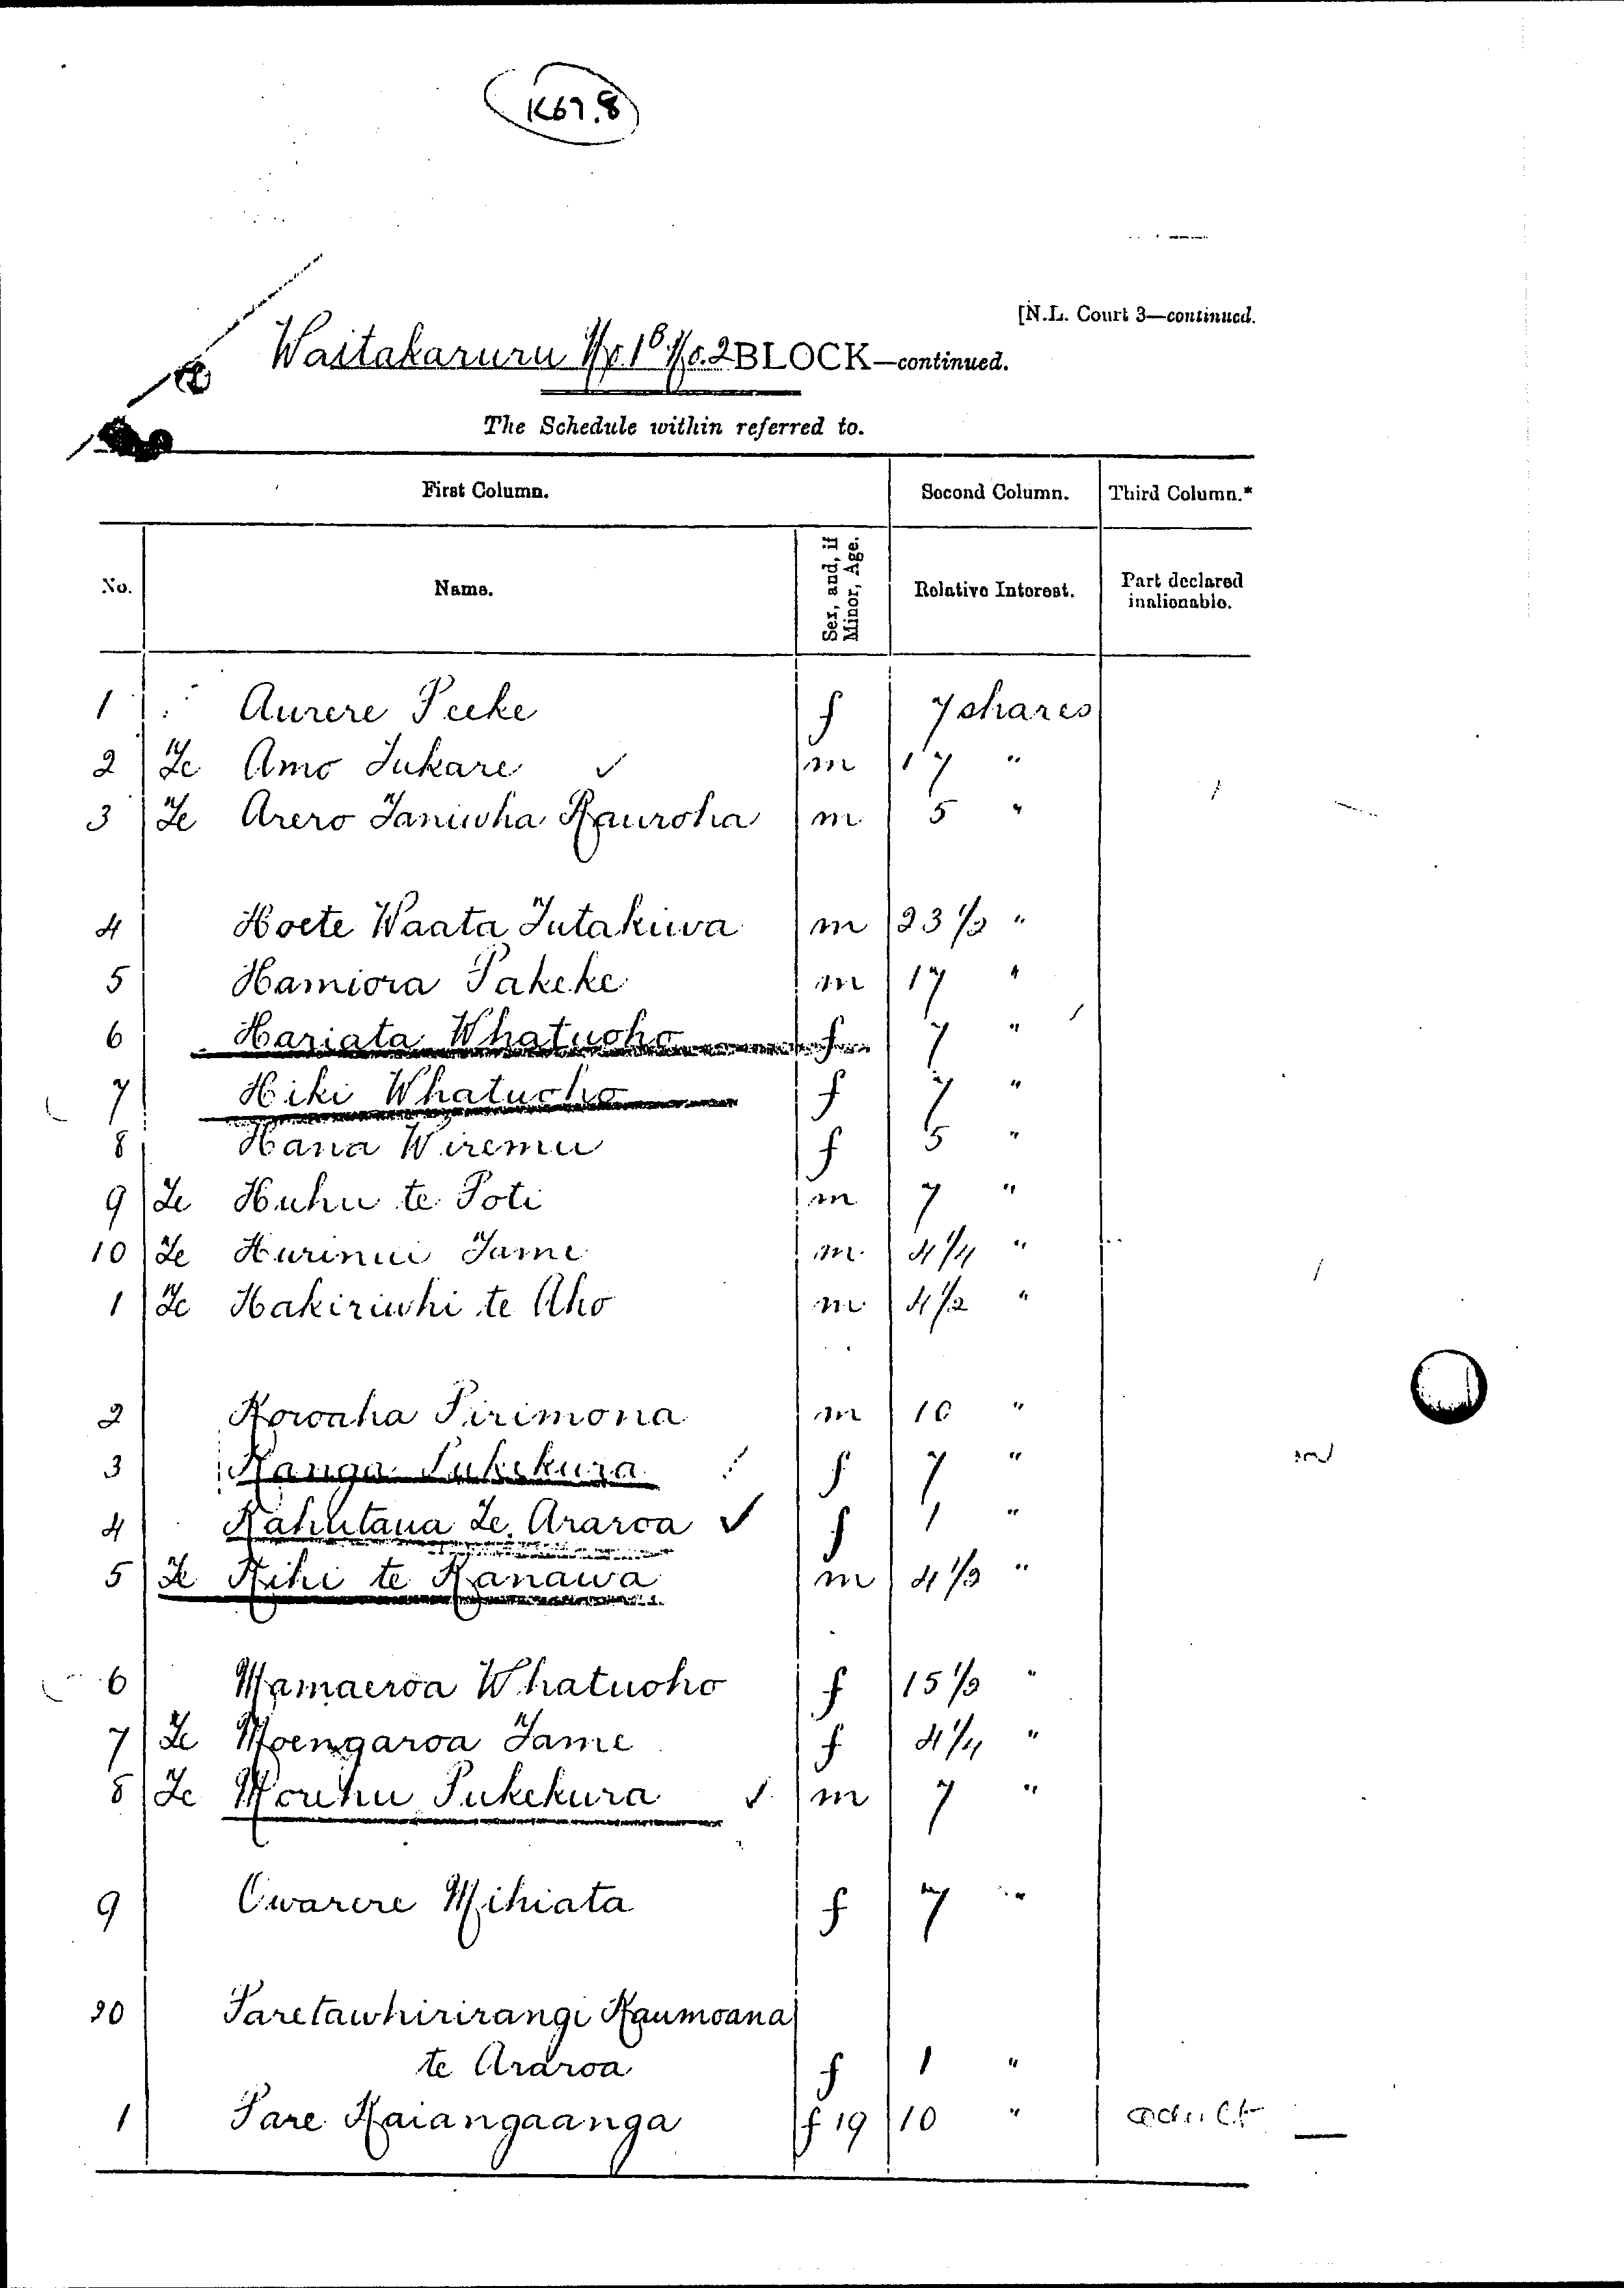 K67.8
[N.L. Court 3—continued.
Waitakaruru No.1B No.2 BLOCK—continued.
The Schedule within referred to.
First Column. Second Column. Third Column.*
No. Name. Sex, and, if Minor, Age. Relative Interest. Part declared inalienable.
1 Aurere Peeke f 7 shares
2 Te Amo Tukare ✓ m 17 "
3 Te Arero Taniwha Rauroha m 5 "
4 Hoete Waata Tutakiwa m 23 1/3 "
5 Hamiora Pakeke m 17 "
6 Hariata Whatuoho f 7 "
7 Hiki Whatuoho f 7 "
8 Hana Wiremu f 5 "
9 Te Huhu te Poti m 7 "
10 Te Hurinui Tame m 4 1/4 "
1 Te Hakiriwhi te Aho m 4 1/2 "
2 Korowaha Pirimona m 10 "
3 Kanga Pukekura f 7 "
4 Kahutaua Te Araroa ✓ f 1 "
5 Te Kihi te Kanawa m 4 1/3 "
6 Mamaeroa Whatuoho f 15 1/3 "
7 Te Moengaroa Tame f 4 1/4 "
8 Te Morehu Pukekura ✓ m 7 "
9 Owarere Mihiata f 7 "
20 Paretawhirirangi Kaumoana
te Araroa f 1 "
1 Pare Kaiangaanga f 19 10 " adult